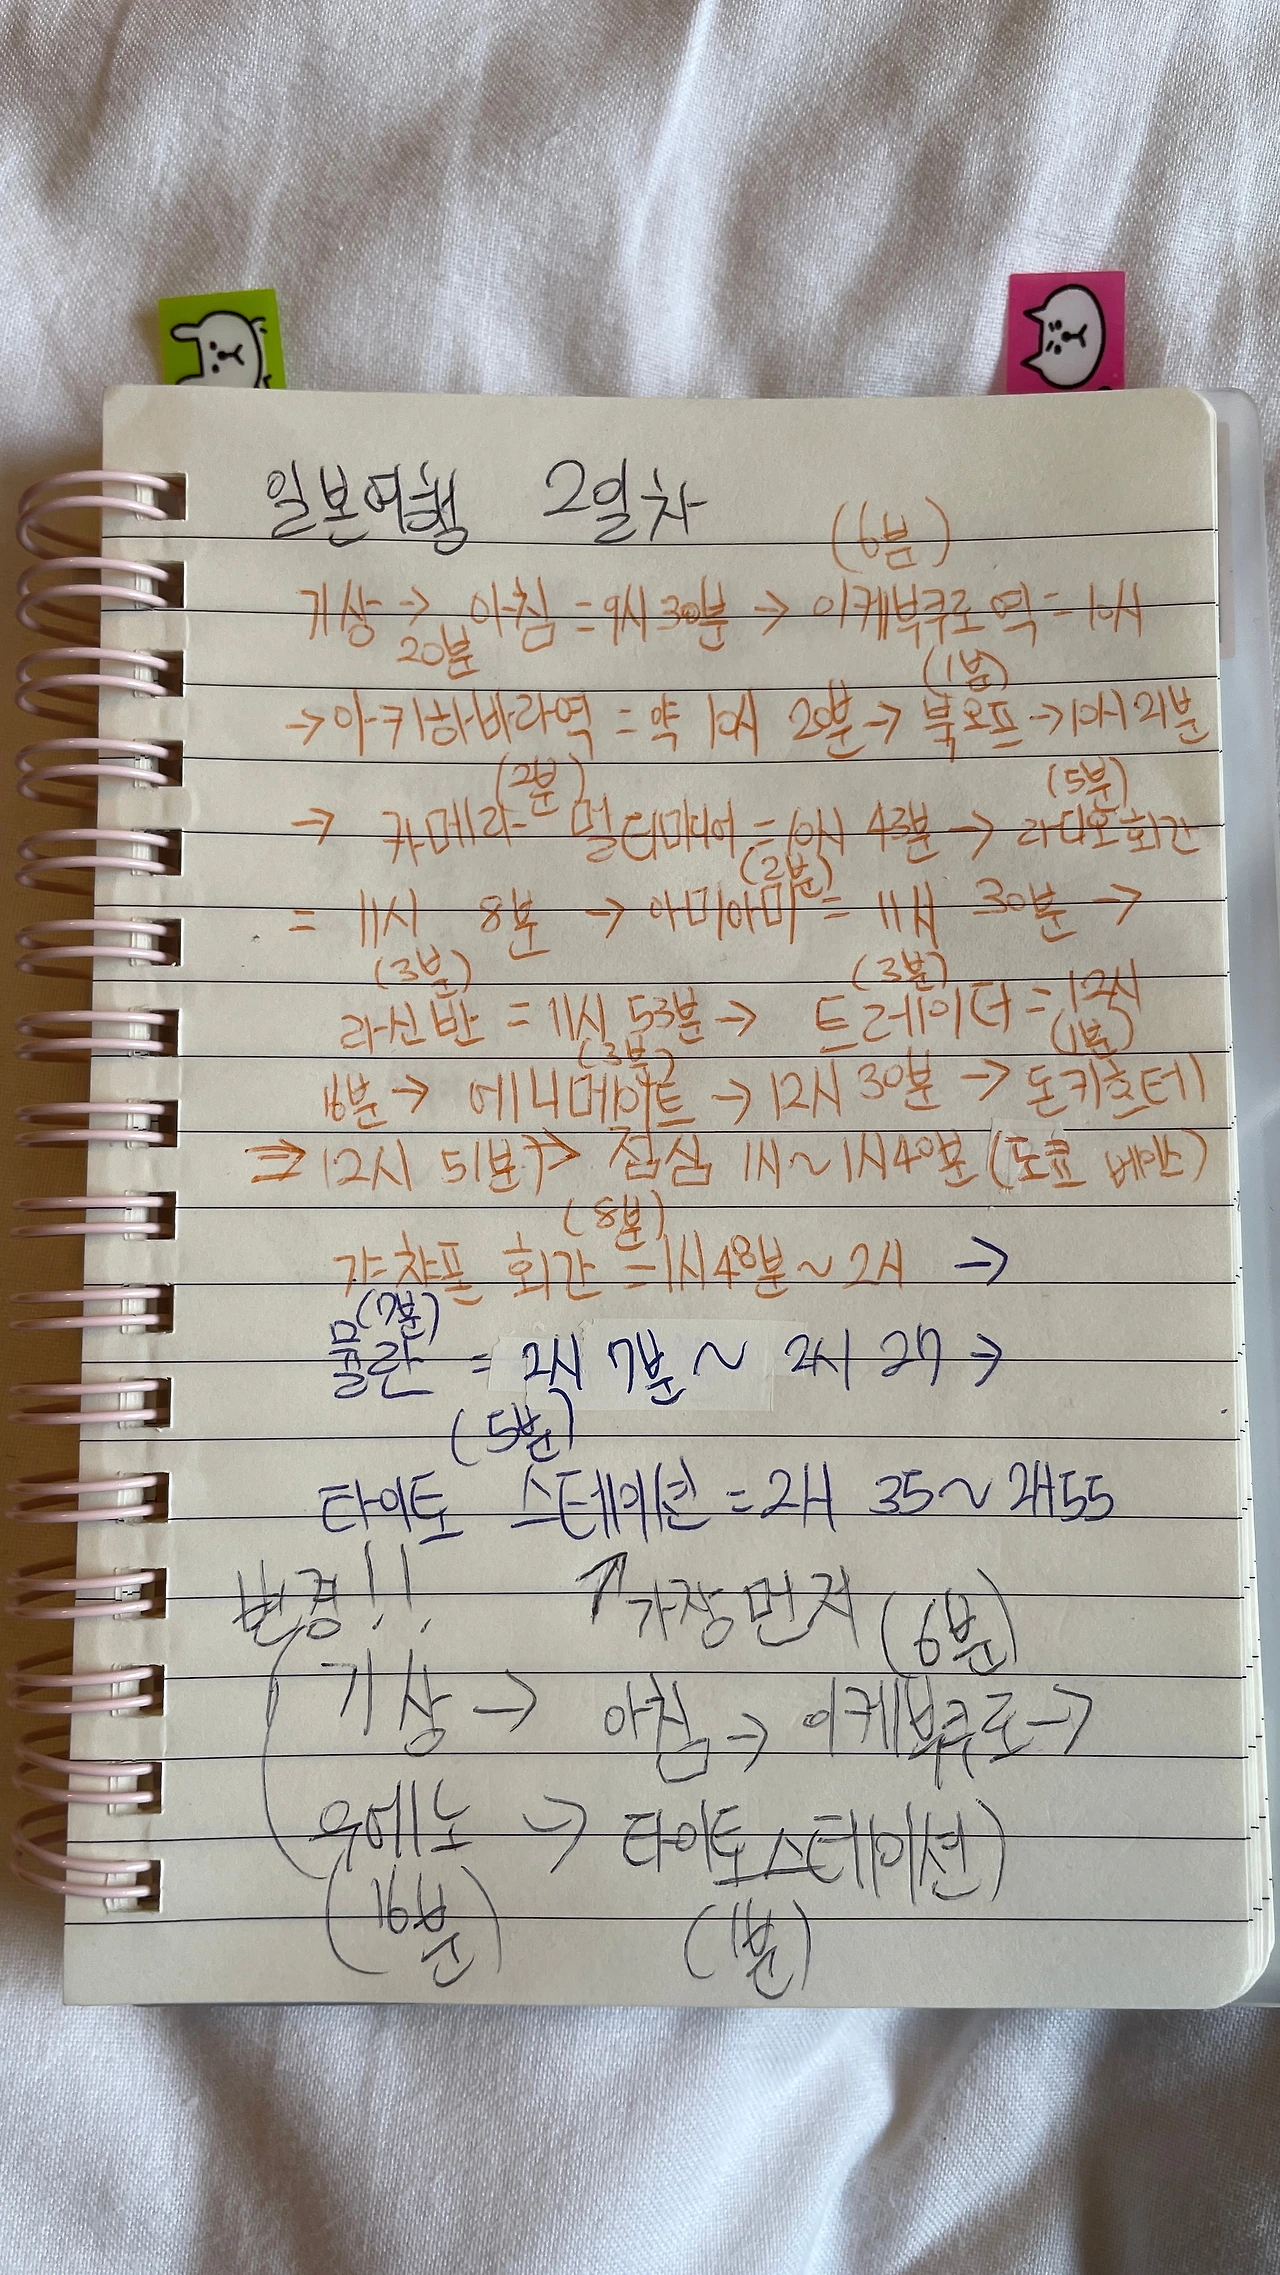 일본여행 2일차
(6분)
기상 → 아침 = 9시 30분 → 이케부쿠로 역 = 10시
20분 (1분)
→ 아키하바라역 = 약 10시 20분 → 북오프 → 10시 21분
(2분) (5분)
→ 카메라 멀티미디어 = 10시 43분 → 라디오회관
(2분)
= 11시 8분 → 아미아미 = 11시 30분 →
(3분) (3분)
라신반 = 11시 53분 → 트레이더 = 12시
(3분) (1분)
16분 → 에니메이트 → 12시 30분 → 돈키호테
⇒ 12시 51분 → 점심 1시 ~ 1시 40분 (도쿄 베이스)
(8분)
가챠폰 회관 = 1시 48분 ~ 2시 →
(7분)
뮬란 = 2시 7분 ~ 2시 27 →
(5분)
타이토 스테이션 = 2시 35 ~ 2시 55
변경!! ↑ 가장 먼저 (6분)
(기상 → 아침 → 이케부쿠로 →
우에노 → 타이토스테이션)
(16분) (1분)